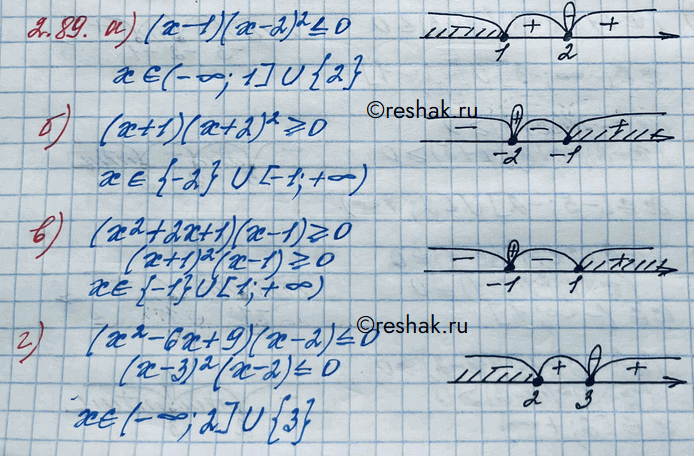 2.89. а) (x-1)(x-2)² ≤ 0
- + +
1 2
x ∈ (-∞; 1] ∪ {2}
©reshak.ru
б) (x+1)(x+2)² ≥ 0
- - +
-2 -1
x ∈ {-2} ∪ [-1; +∞)
в) (x²+2x+1)(x-1) ≥ 0
(x+1)²(x-1) ≥ 0
- - +
-1 1
x ∈ {-1} ∪ [1; +∞)
©reshak.ru
г) (x²-6x+9)(x-2) ≤ 0
(x-3)²(x-2) ≤ 0
- + +
2 3
x ∈ (-∞; 2] ∪ {3}